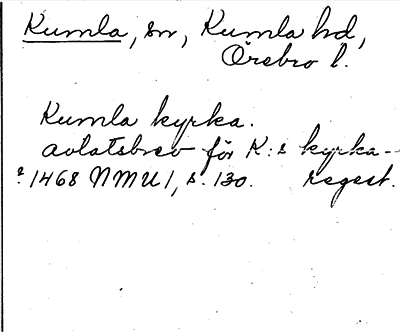 Kumla, sn, Kumla hd,
Örebro l.
Kumla kyrka.
avlatsbrev för K:s kyrka-
1468 NMU 1, s. 130. regest.